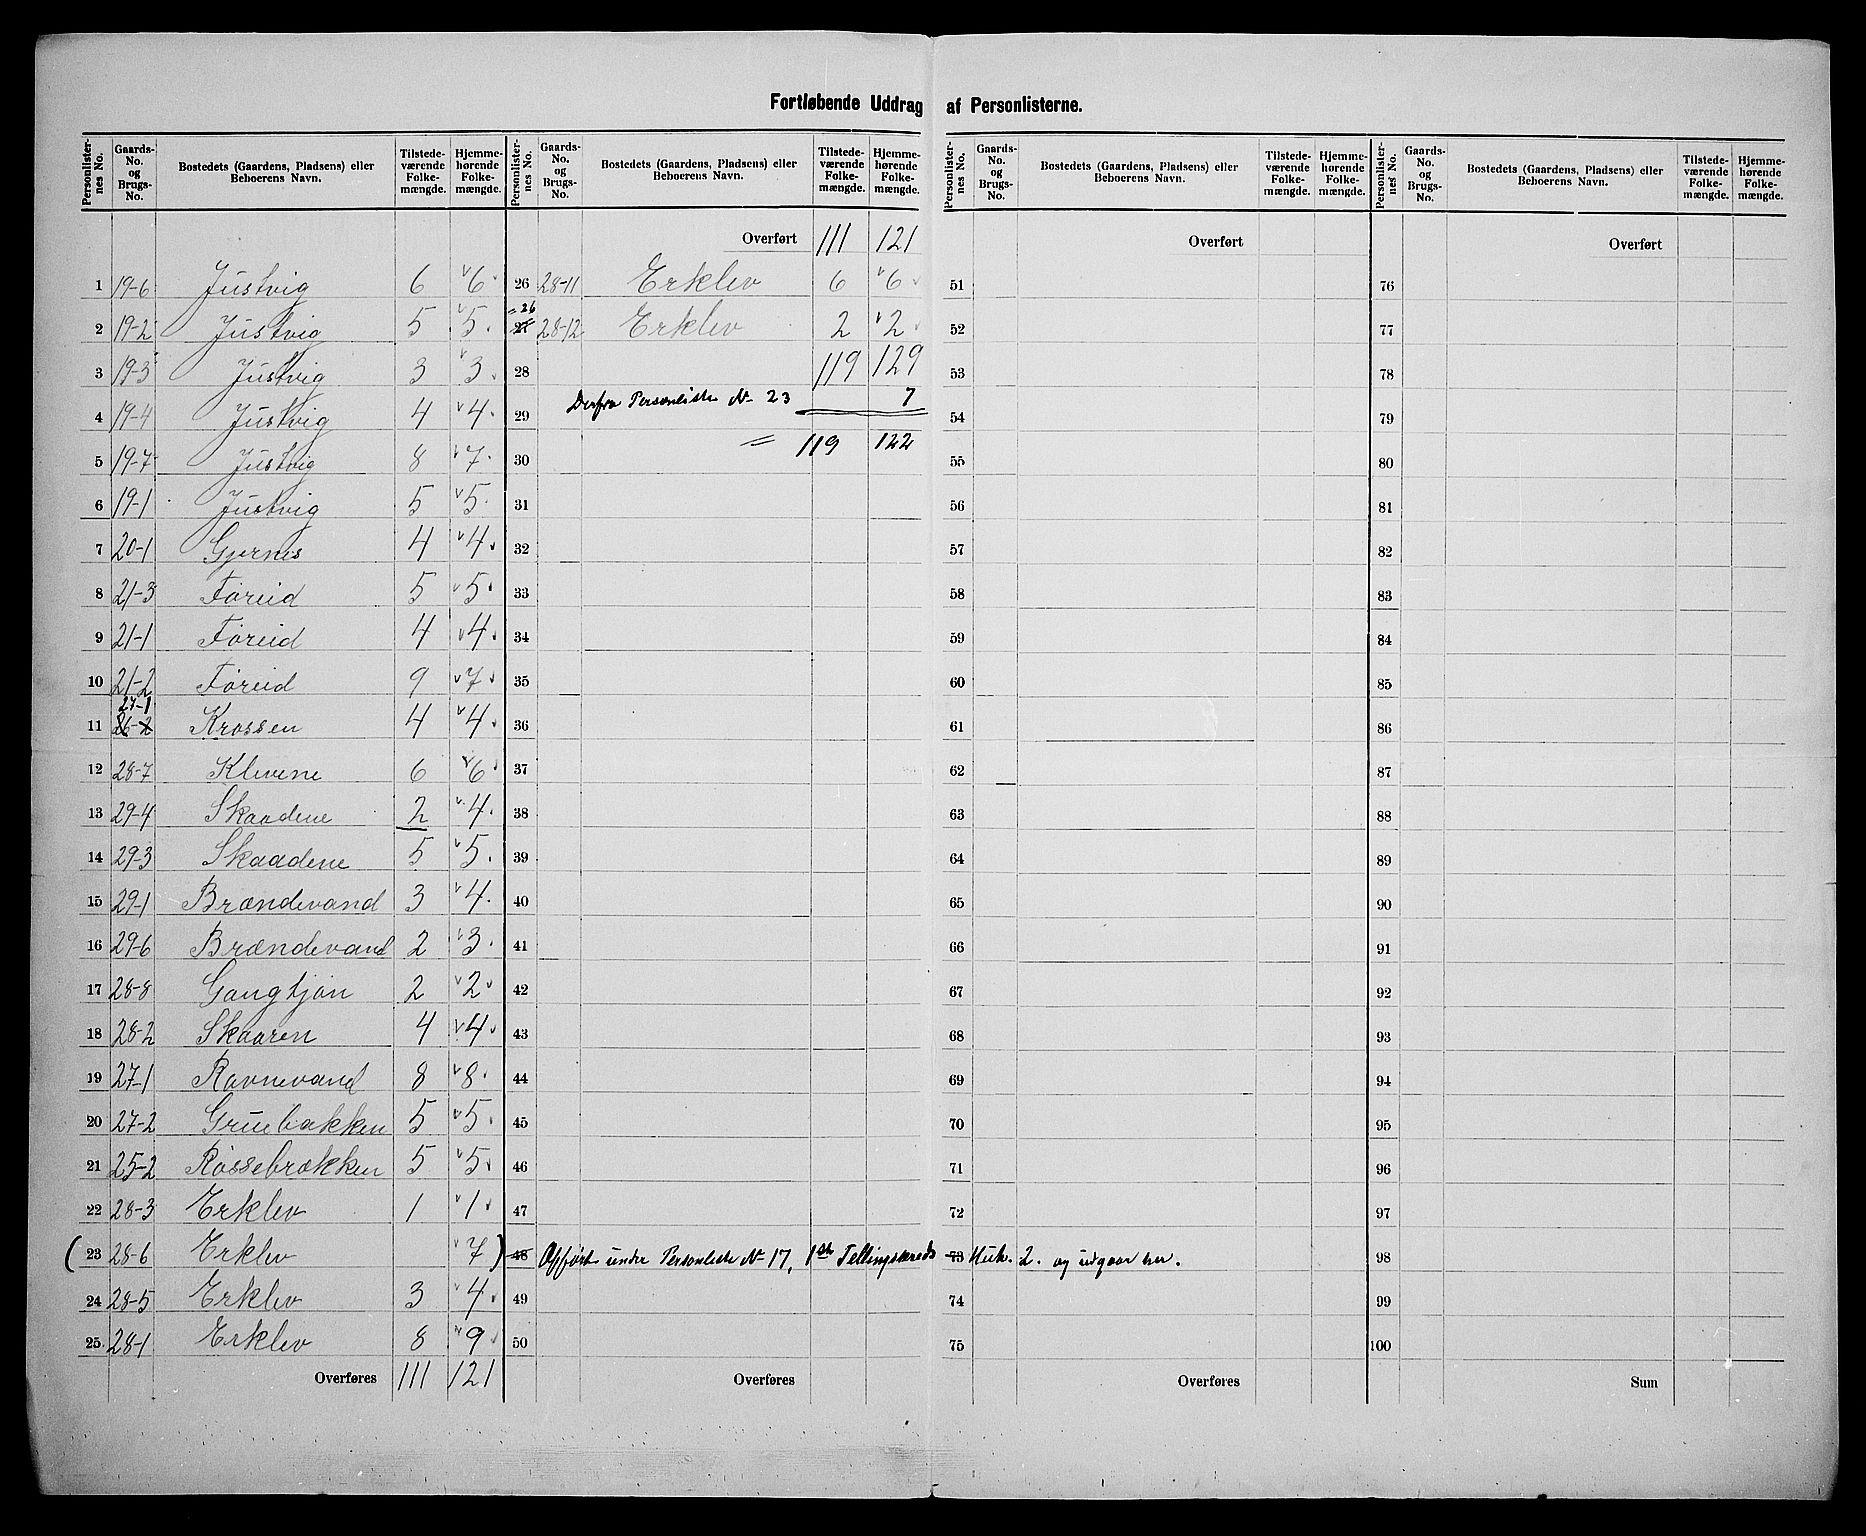 Fortløbende Uddrag af Personlisterne.
Personlisternes No. Gaards-No. og Brugs-No. Bostedets (Gaardens, Pladsens) eller Beboerens Navn. Tilstedeværende Folkemængde. Hjemmehørende Folkemængde.
1 19-6 Justvig 6 v 6
2 19-2 Justvig 5 v 5
3 19-3 Justvig 3 v 3
4 19-4 Justvig 4 v 4
5 19-7 Justvig 8 v 7
6 19-1 Justvig 5 v 5
7 20-1 Gjernes 4 v 4
8 21-3 Foreid 5 v 5
9 21-1 Foreid 4 v 4
10 21-2 Foreid 9 v 7
27-1
11 26-2 Krossen 4 v 4
12 28-7 Klevene 6 v 6
13 29-4 Skaadene 2 v 4
14 29-3 Skaadene 5 v 5
15 29-1 Brændevand 3 v 4
16 29-6 Brændevand 2 v 3
17 28-8 Gangtjøn 2 v 2
18 28-2 Skaaren 4 v 4
19 27-1 Ravnevand 8 v 8
20 27-2 Gruebakken 5 v 5
21 25-2 Røssebrækken 5 v 5
22 28-3 Erklev 1 v 1
(23 28-6 Erklev v 7)
24 28-5 Erklev 3 v 4
25 28-1 Erklev 8 v 9
Overføres 111 121
Personlisternes No. Gaards-No. og Brugs-No. Bostedets (Gaardens, Pladsens) eller Beboerens Navn. Tilstedeværende Folkemængde. Hjemmehørende Folkemængde.
Overført 111 121
26 28-11 Erklev 6 v 6
= 26
27 28-12 Erklev 2 v 2
28 119 129
29 Derfra Personliste No 23 7
30 = 119 122
31
32
33
34
35
36
37
38
39
40
41
42
43
44
45
46
47
48 Opført under Personliste No 17, 1ste Tellingskreds 73 Huk. 2. og udgaar her.
49
50
Overføres
Personlisternes No. Gaards-No. og Brugs-No. Bostedets (Gaardens, Pladsens) eller Beboerens Navn. Tilstedeværende Folkemængde. Hjemmehørende Folkemængde.
Overført
51
52
53
54
55
56
57
58
59
60
61
62
63
64
65
66
67
68
69
70
71
72
74
75
Overføres
Personlisternes No. Gaards-No. og Brugs-No. Bostedets (Gaardens, Pladsens) eller Beboerens Navn. Tilstedeværende Folkemængde. Hjemmehørende Folkemængde.
Overført
76
77
78
79
80
81
82
83
84
85
86
87
88
89
90
91
92
93
94
95
96
97
98
99
100
Sum